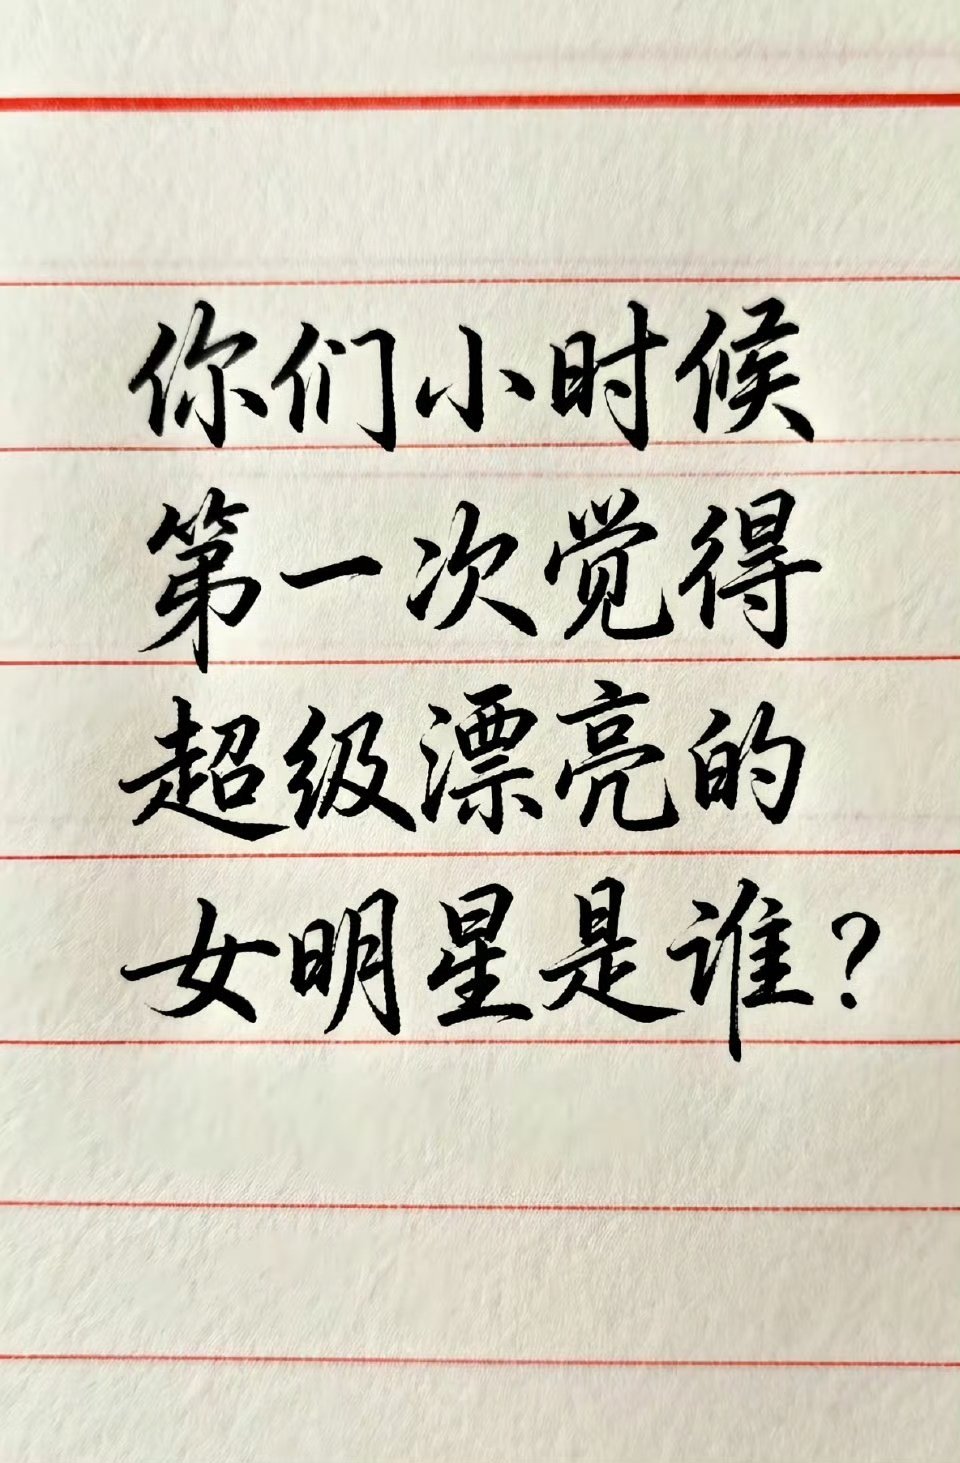 你们小时候
第一次觉得
超级漂亮的
女明星是谁？